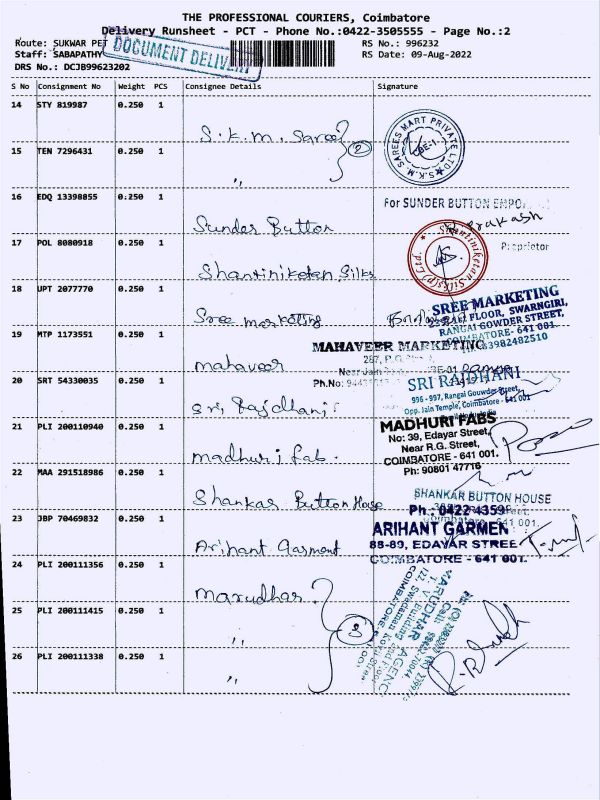 THE PROFESSIONAL COURIERS, Coimbatore
Delivery Runsheet - PCT - Phone No.:0422-3505555 - Page No.:2
Route: SUKWAR PET
RS No.: 996232
Staff: SABAPATHY
RS Date: 09-Aug-2022
DRS No.: DCJB99623202
DOCUMENT DELIVERY
S No Consignment No Weight PCS Consignee Details Signature
14 STY 819987 0.250 1
S.K.M. Saree
2
S.K.M. SAREES MART PRIVATE LTD
CBE-1
15 TEN 7296431 0.250 1
"
16 EDQ 13398855 0.250 1
For SUNDER BUTTON EMPO
Sunder Button
Prakash
Proprietor
17 POL 8080918 0.250 1
Shantiniketan Silks
Shantiniketan Silks (p) Ltd.
18 UPT 2077770 0.250 1
Sree marketing
SREE MARKETING
FLOOR, SWARNGIRI,
RANGAI GOWDER STREET,
COIMBATORE- 641 001.
9982482510
19 MTP 1173551 0.250 1
mahaveer
MAHAVEER MARKETING
287,
Near Jain
Ph.No:
20 SRT 54330035 0.250 1
Sri Rajdhani
SRI RAJDHANI
996 - 997, Rangai Gouwder Street,
Opp. Jain Temple, Coimbatore - 641 001
21 PLI 200110940 0.250 1
madhuri fab.
MADHURI FABS
No: 39, Edayar Street,
Near R.G. Street,
COIMBATORE - 641 001.
Ph: 90801 47716
22 MAA 291518986 0.250 1
Shankar Button House
SHANKAR BUTTON HOUSE
Ph.: 0422 4359
23 JBP 70469832 0.250 1
Arihant Garment
ARIHANT GARMEN
88-89, EDAYAR STREE
COIMBATORE - 641 001.
24 PLI 200111356 0.250 1
Marudhar
3
MARUDHAR AGENC
25 PLI 200111415 0.250 1
"
26 PLI 200111338 0.250 1
"